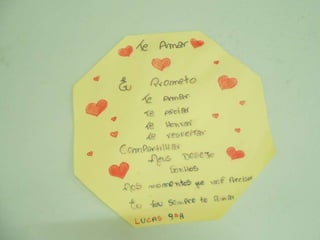 Te Amar
Eu Prometo
Te Amar
Te apoiar
Te Honrar
Te respeitar
Compartilhar
Meus Desejo
Sonhos
Nos momentos que você Precisar
Eu Vou Sempre te Amar
LUCAS 9ºA